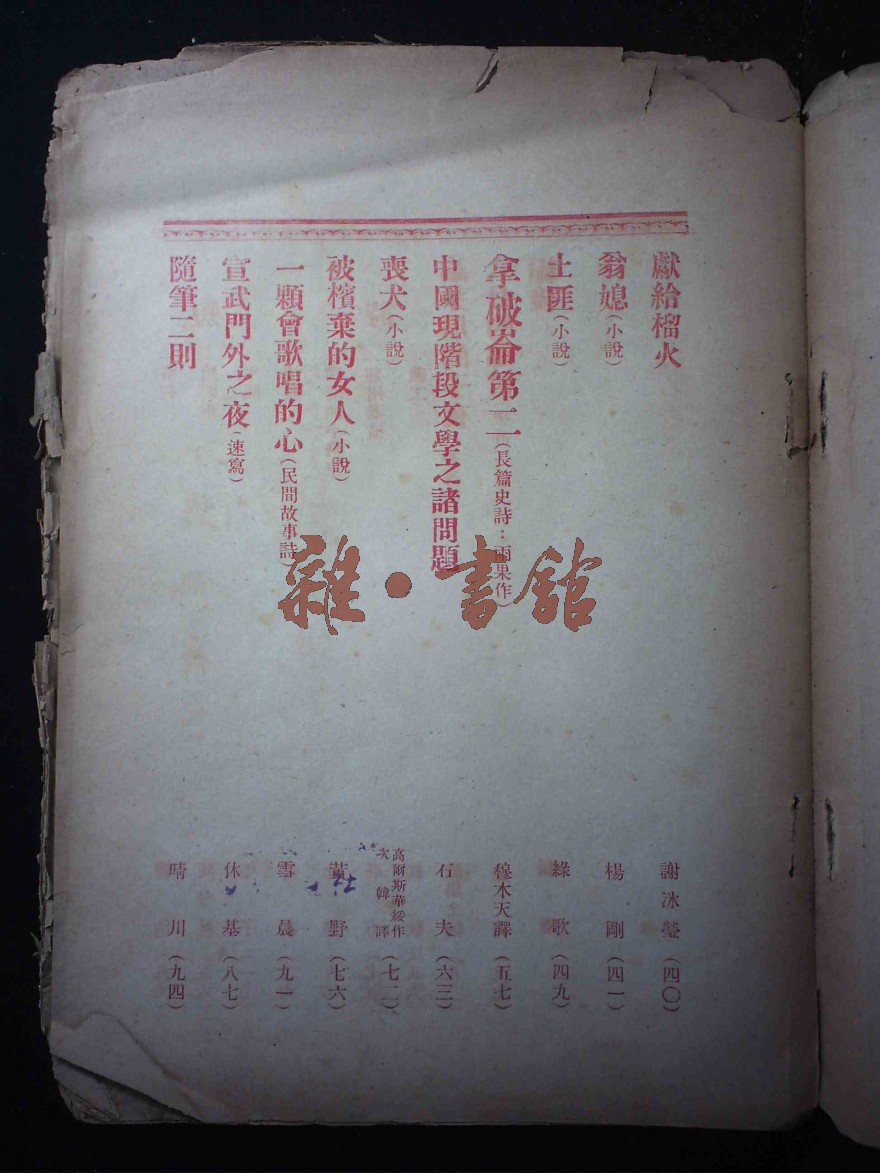 獻給榴火 謝冰瑩（四〇）
翁媳（小說） 楊剛（四一）
土匪（小說） 綠歌（四九）
拿破崙第二（長篇史詩：雨果作） 穆木天譯（五七）
中國現階段文學之諸問題 石夫（六三）
喪犬（小說） 高爾斯華綏作 次韓譯（七二）
被檳棄的女人（小說） 黃野（七六）
一顆會歌唱的心（民間故事詩） 雪晨（九一）
宣武門外之夜（速寫） 休基（八七）
隨筆二則 晴川（九四）
雜·書舘